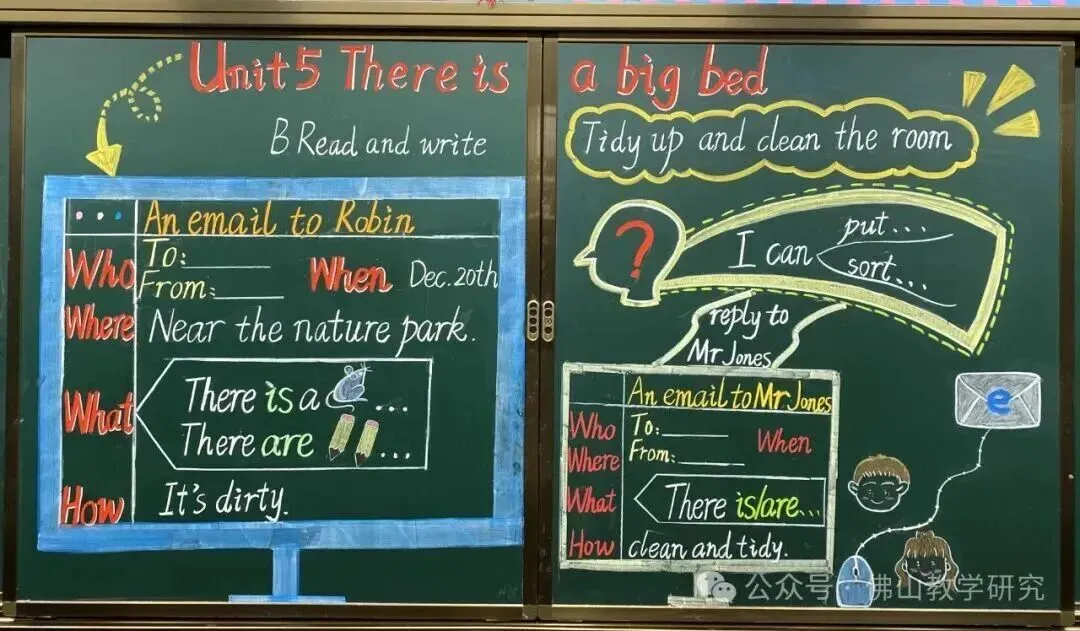 Unit 5 There is a big bed
B Read and write
An email to Robin
Who
To:
From:
When Dec. 20th
Where Near the nature park.
What
There is a ...
There are ...
How It's dirty.
Tidy up and clean the room
?
I can
put...
sort...
reply to
Mr Jones
An email to Mr Jones
Who
To:
From:
When
Where
What There is/are...
How clean and tidy.
e
公众号·佛山教学研究